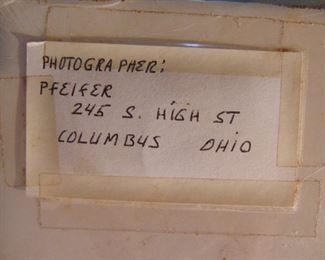 PHOTOGRAPHER:
PFEIFER
245 S. HIGH ST
COLUMBUS OHIO